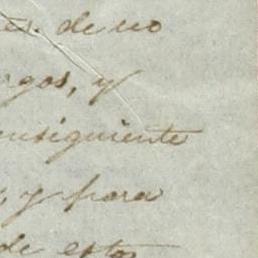 tes. de no
rgos, y
onsiguiente
, y para
de estos